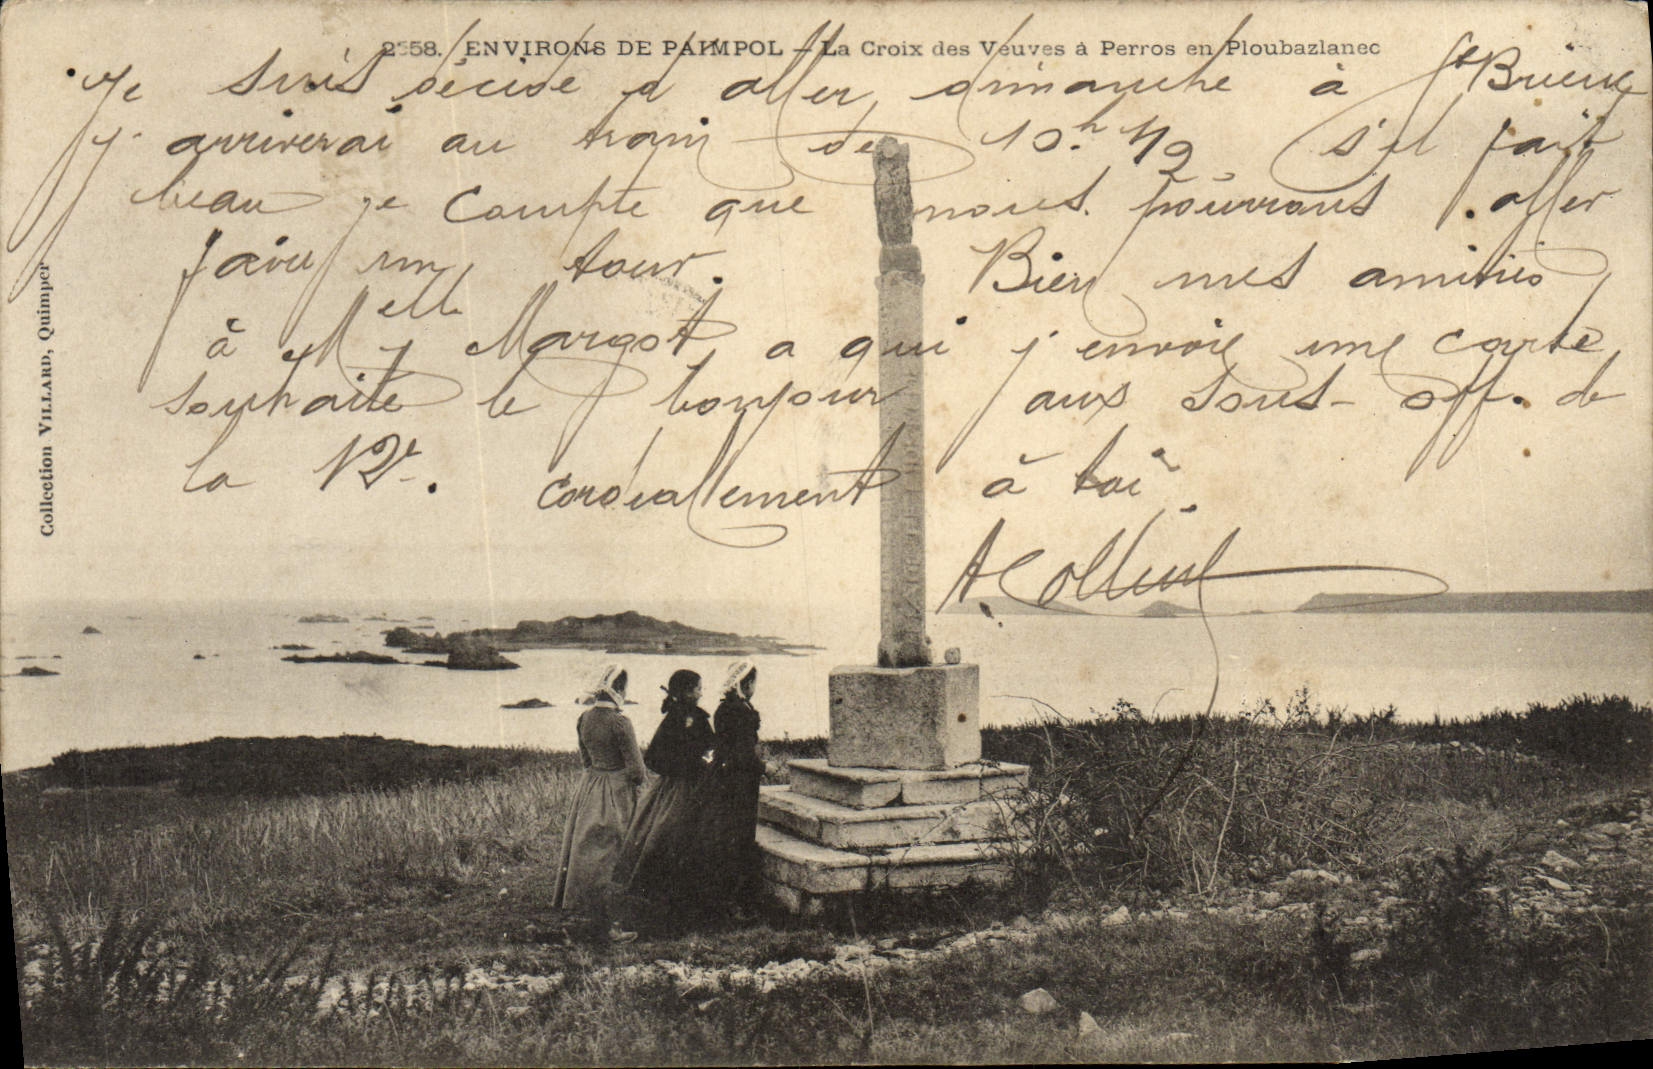 2558. ENVIRONS DE PAIMPOL – La Croix des Veuves à Perros en Ploubazlanec
Je suis décidé d aller dimanche à St Brieuc
j'arriverai au train de 10.h 1/2 s'il fait
beau je compte que nous pourrons aller
faire un tour. Bien mes amitiés
à Melle Margot a qui j'envoie une carte,
souhaite le bonjour aux sous-off. de
la 12e. Cordialement à toi.
A Collin
Collection VILLARD, Quimper